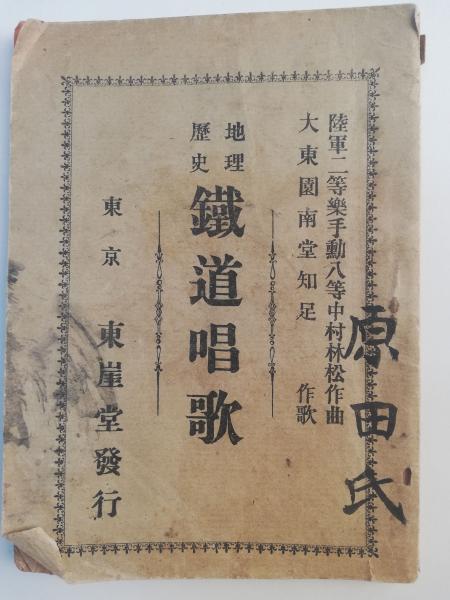 陸軍二等樂手勳八等中村林松作曲
大東園南堂知足 作歌
地理
歷史
鐵道唱歌
東京 東崖堂發行
原田氏